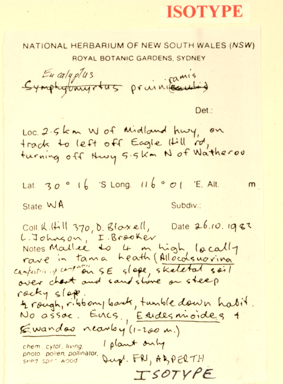 ISOTYPE
NATIONAL HERBARIUM OF NEW SOUTH WALES (NSW)
ROYAL BOTANIC GARDENS, SYDNEY
Eucalyptus
Symphyomyrtus pruiniramis
Det.:
Loc. 2.5km W of Midland hwy, on
track to left off Eagle Hill rd,
turning off Hwy 5.5km N of Watheroo
Lat. 30° 16' S Long. 116° 01' E, Alt. m
State WA Subdiv.:
Coll. K. Hill 370, D. Blaxell, Date 26.10.1983
L. Johnson, I. Brooker
Notes Mallee to 4 m high, locally
rare in tama heath (Allocasuarina
campestris) on SE slope, skeletal soil
over chert and sandstone on steep
rocky slope.
½ rough, ribbony bark, tumbledown habit.
No assoc. Eucs, Eudesmioides &
Ewandoo nearby (1-200 m.)
chem. cytol. living, 1 plant only
photo. pollen, pollinator,
seed spirit wood Dupl. FRI, AD, PERTH
ISOTYPE